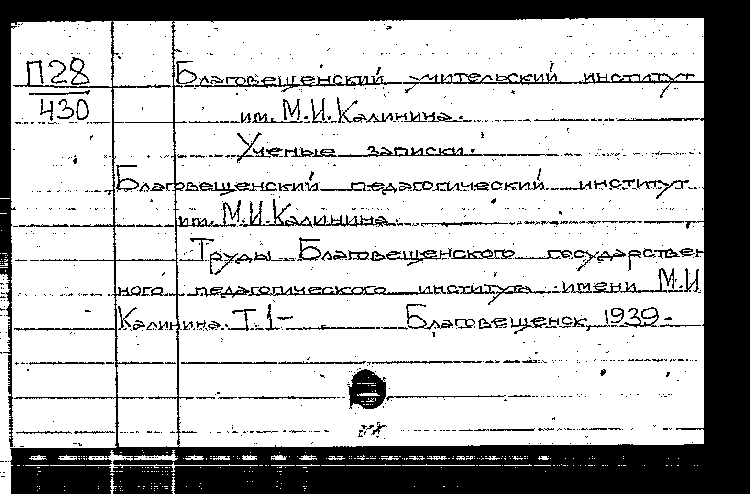 П28
430
Благовещенский учительский институт
им. М.И.Калинина.
Ученые записки.
Благовещенский педагогический институт
им. М.И.Калинина.
Труды Благовещенского государствен
ного педагогического института имени М.И
Калинина. Т.1- Благовещенск, 1939-